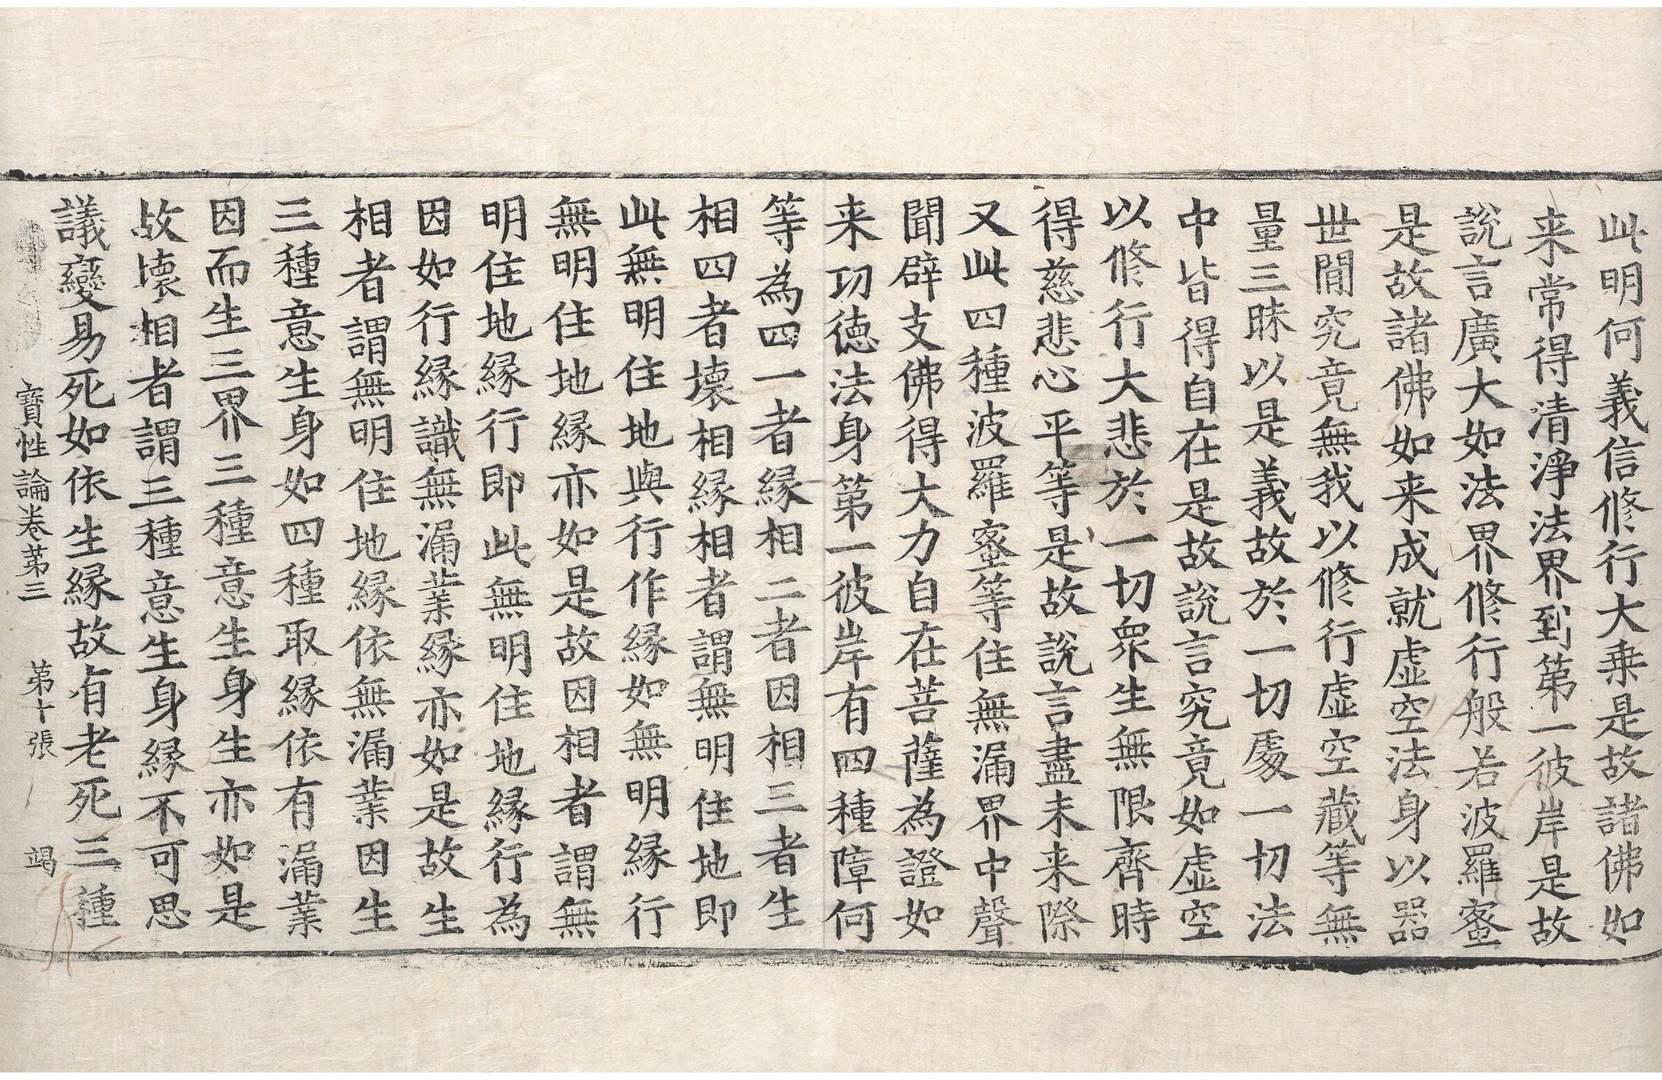 此明何義信修行大乗是故諸佛如
来常得清淨法界到第一彼岸是故
說言廣大如法界修行般若波羅蜜
是故諸佛如来成就虚空法身以器
世間究竟無我以修行虚空藏等無
量三昧以是義故於一切處一切法
中皆得自在是故說言究竟如虚空
以修行大悲於一切衆生無限齊時
得慈悲心平等是故說言盡未来際
又此四種波羅蜜等住無漏界中聲
聞辟支佛得大力自在菩薩為證如
来功德法身第一彼岸有四種障何
等為四一者縁相二者因相三者生
相四者壞相縁相者謂無明住地即
此無明住地與行作縁如無明縁行
無明住地縁亦如是故因相者謂無
明住地縁行即此無明住地縁行為
因如行縁識無漏業縁亦如是故生
相者謂無明住地縁依無漏業因生
三種意生身如四種取縁依有漏業
因而生三界三種意生身生亦如是
故壞相者謂三種意生身縁不可思
議變易死如依生縁故有老死三種
寶性論卷第三 第十張 竭